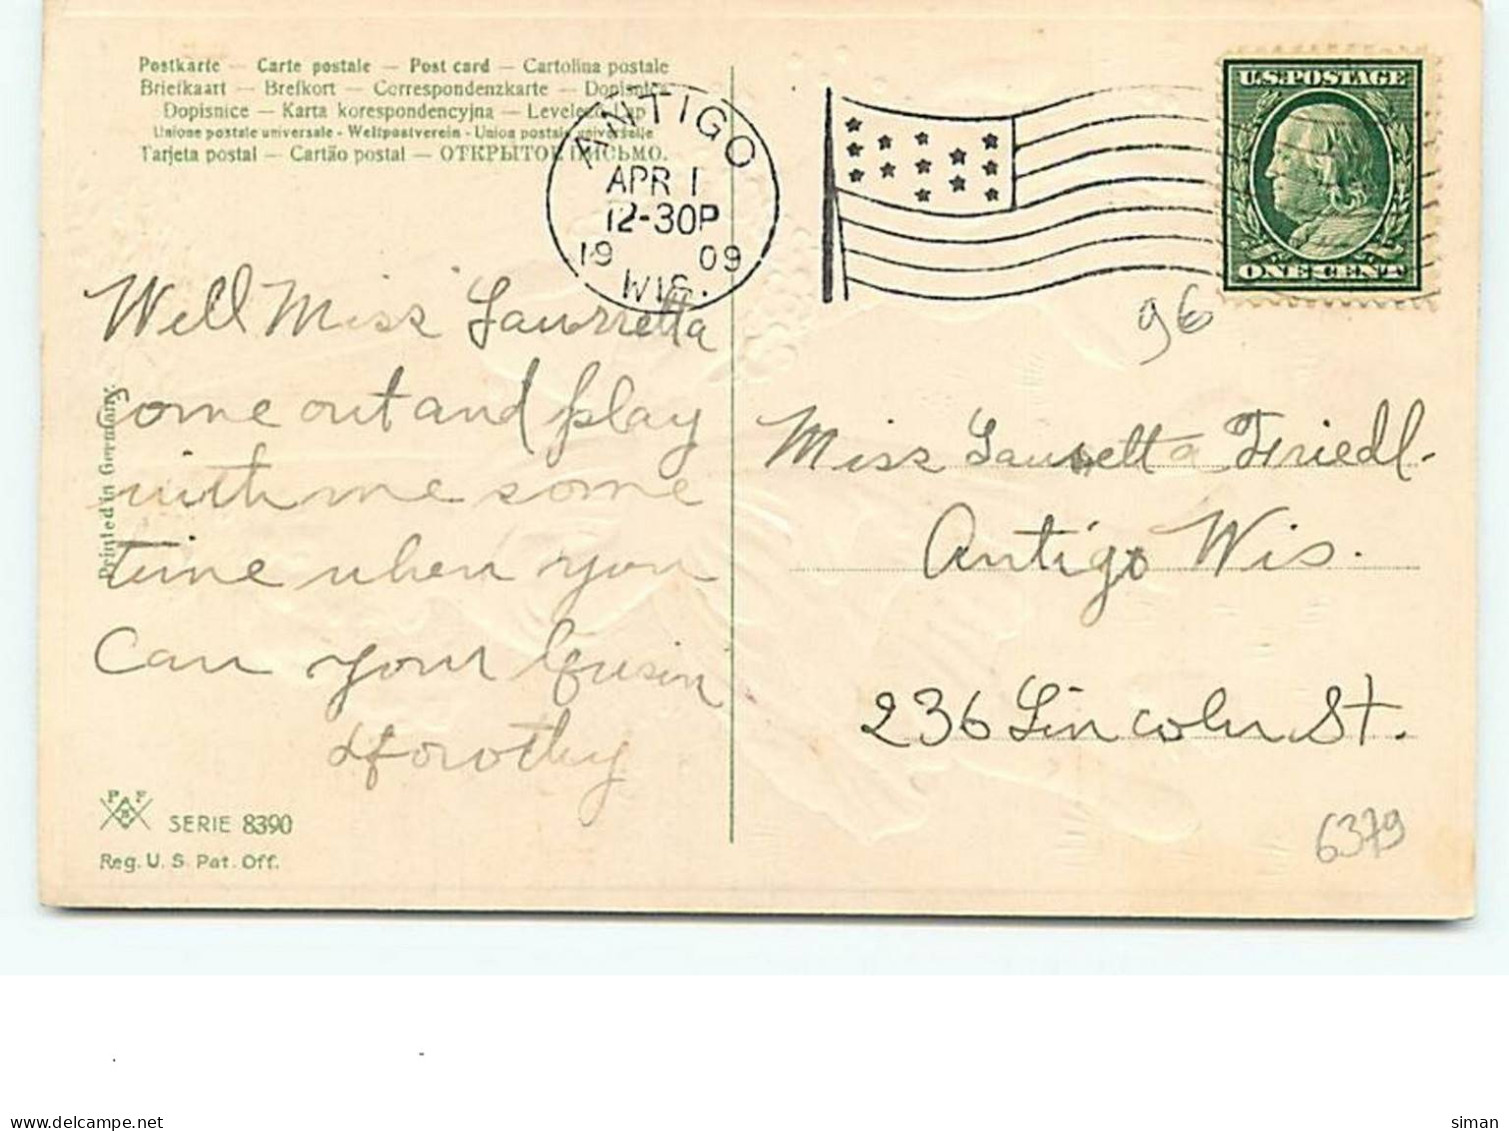 Postkarte — Carte postale — Post card — Cartolina postale
Briefkaart — Brefkort — Correspondenzkarte — Dopisnica
Dopisnice — Karta korespondencyjna — Levelező-Lap
Unione postale universale - Weltpostverein - Union postale universelle
Tarjeta postal — Cartão postal — ОТКРЫТОЕ ПИСЬМО.
ANTIGO
APR 1
12-30P
19 09
WIS.
U.S. POSTAGE
ONE CENT
96
Well Miss Laurretta
come out and play
with me some
time when you
can your Cousin
Dorothy
Printed in Germany.
Miss Lauretta Friedl.
Antigo Wis.
236 Lincoln St.
P F
B
SERIE 8390
Reg. U. S. Pat. Off.
6379
delcampe.net
siman